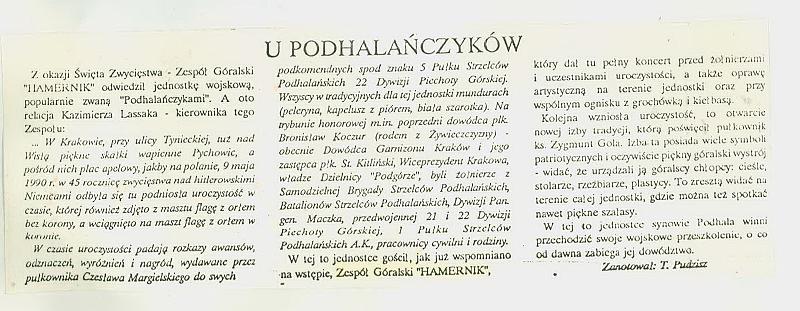 U PODHALAŃCZYKÓW
Z okazji Święta Zwycięstwa - Zespół Góralski
"HAMERNIK" odwiedził jednostkę wojskową,
popularnie zwaną "Podhalańczykami". A oto
relacja Kazimierza Lassaka - kierownika tego
Zespołu:
... W Krakowie, przy ulicy Tynieckiej, tuż nad
Wisłą piękne skałki wapienne Pychowic, a
pośród nich plac apelowy, jakby na polanie, 9 maja
1990 r. w 45 rocznicę zwycięstwa nad hitlerowskimi
Niemcami odbyła się tu podniosła uroczystość w
czasie, której również zdjęto z masztu flagę z orłem
bez korony, a wciągnięto na maszt flagę z orłem w
koronie.
W czasie uroczystości padają rozkazy awansów,
odznaczeń, wyróżnień i nagród, wydawane przez
pułkownika Czesława Margielskiego do swych
podkomendnych spod znaku 5 Pułku Strzelców
Podhalańskich 22 Dywizji Piechoty Górskiej.
Wszyscy w tradycyjnych dla tej jednostki mundurach
(peleryna, kapelusz z piórem, biała szarotka). Na
trybunie honorowej m.in. poprzedni dowódca płk.
Bronisław Koczur (rodem z Żywiecczyzny) -
obecnie Dowódca Garnizonu Kraków i jego
zastępca płk. St. Kiliński, Wiceprezydent Krakowa,
władze Dzielnicy "Podgórze", byli żołnierze z
Samodzielnej Brygady Strzelców Podhalańskich,
Batalionów Strzelców Podhalańskich, Dywizji Pan.
gen. Maczka, przedwojennej 21 i 22 Dywizji
Piechoty Górskiej, 1 Pułku Strzelców
Podhalańskich A.K., pracownicy cywilni i rodziny.
W tej to jednostce gościł, jak już wspomniano
na wstępie, Zespół Góralski "HAMERNIK",
który dał tu pełny koncert przed żołnierzami
i uczestnikami uroczystości, a także oprawę
artystyczną na terenie jednostki oraz przy
wspólnym ognisku z grochówką i kiełbasą.
Kolejna wzniosła uroczystość, to otwarcie
nowej izby tradycji, którą poświęcił pułkownik
ks. Zygmunt Gola. Izba ta posiada wiele symboli
patriotycznych i oczywiście piękny góralski wystrój
- widać, że urządzali ją góralscy chłopcy: cieśle,
stolarze, rzeźbiarze, plastycy. To zresztą widać na
terenie całej jednostki, gdzie można też spotkać
nawet piękne szałasy.
W tej to jednostce synowie Podhala winni
przechodzić swoje wojskowe przeszkolenie, o co
od dawna zabiega jej dowództwo.
Zanotował: T. Pudzisz